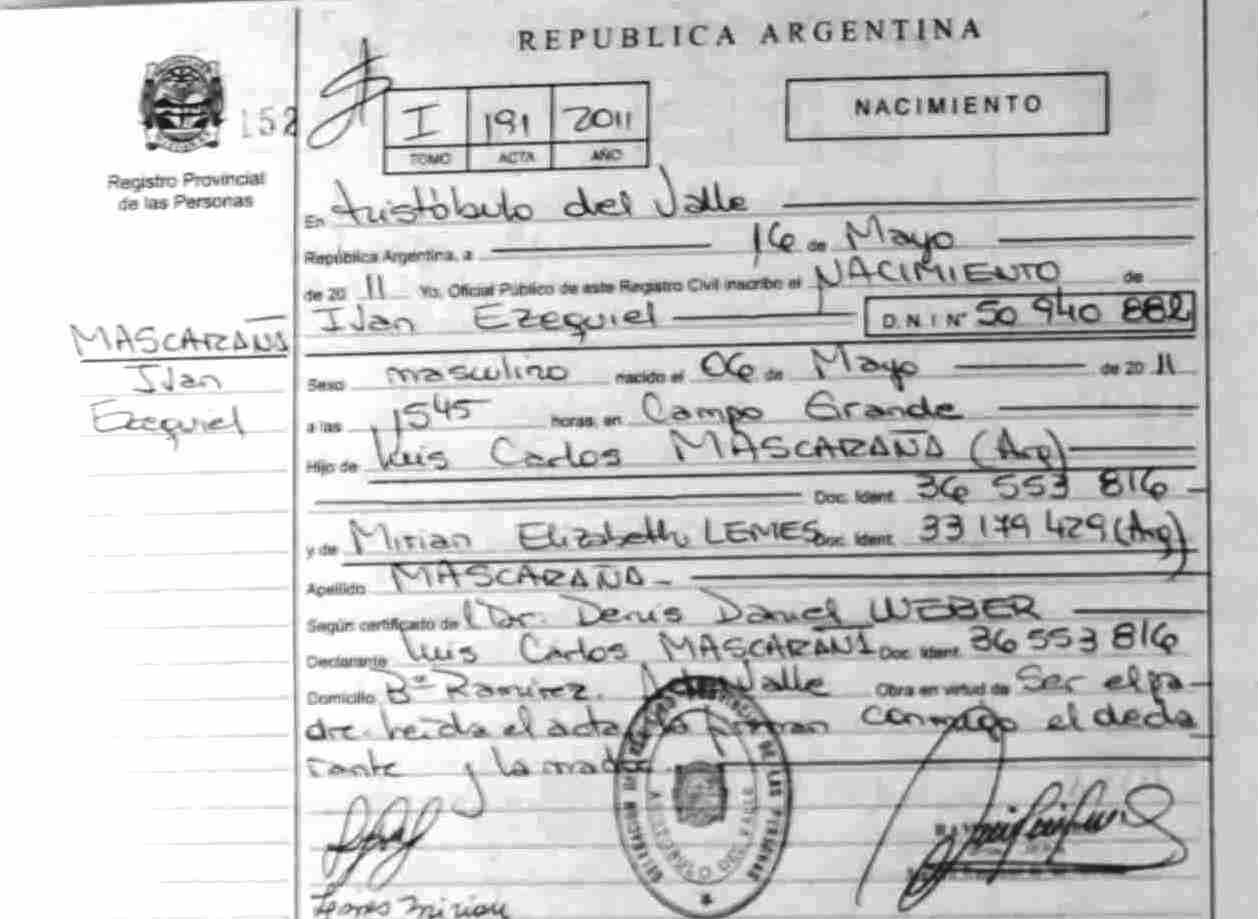 REPUBLICA ARGENTINA
152
I 191 2011
TOMO ACTA AÑO
NACIMIENTO
Registro Provincial
de las Personas
En Aristóbulo del Valle
República Argentina, a 16 de Mayo
de 20 11 Yo, Oficial Público de este Registro Civil inscribo el NACIMIENTO de
Ivan Ezequiel D.N.I Nº 50 940 882
MASCARAÑA
Ivan
Ezequiel
Sexo masculino nacido el 06 de Mayo de 20 11
a las 1545 horas, en Campo Grande
Hijo de Luis Carlos MASCARAÑA (Arg)
Doc. Ident. 36 553 816
y de Mirian Elizabeth LEMES Doc. Ident. 33 179 429 (Arg)
Apellido MASCARAÑA
Según certificado de l Dr. Denis Daniel WEBER
Declarante Luis Carlos MASCARAÑA Doc. Ident. 36 553 816
Domicilio Bº Ramirez. Valle Obra en virtud de Ser el pa-
dre. Leida el acta la firman conmigo el decla
rante y la madre
DE LAS PERSONAS
ARISTOBULO DEL VALLE
Lemes Mirian